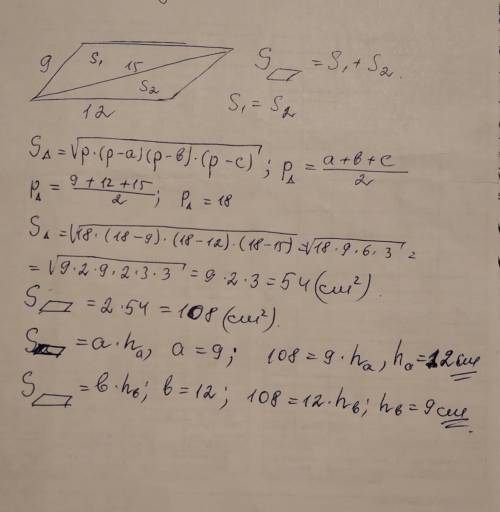 9 S₁ 15 S₂ 12
S▱ = S₁ + S₂.
S₁ = S₂
S△ = √(p·(p−a)(p−b)·(p−c)); p△ = (a+b+c)/2
p△ = (9+12+15)/2; p△ = 18
S△ = √(18·(18−9)·(18−12)·(18−15)) = √(18·9·6·3) =
= √(9·2·9·2·3·3) = 9·2·3 = 54 (см²).
S▱ = 2·54 = 108 (см²).
S▱ = a·hₐ, a = 9; 108 = 9·hₐ, hₐ = 12 см
S▱ = в·hв; в = 12; 108 = 12·hв; hв = 9 см